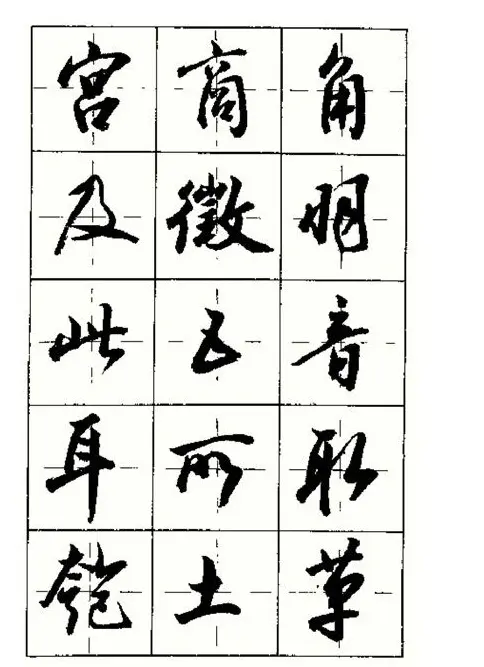 宫商角
及徵羽
此五音
耳所取
匏土革